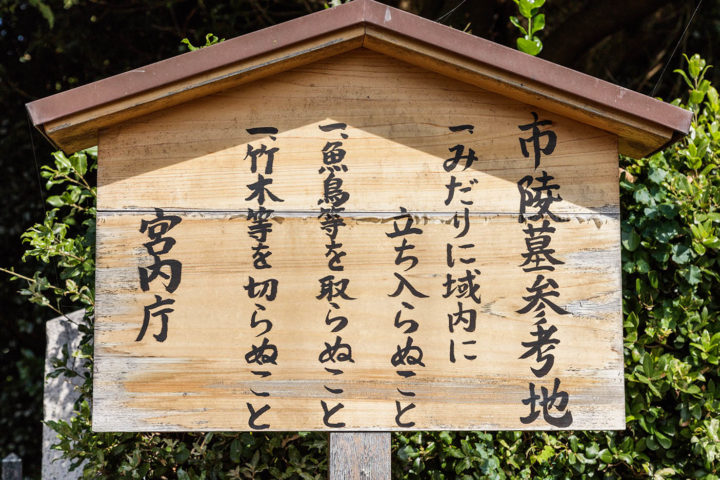 市陵墓参考地
一、みだりに域内に
立ち入らぬこと
一、魚鳥等を取らぬこと
一、竹木等を切らぬこと
宮内庁